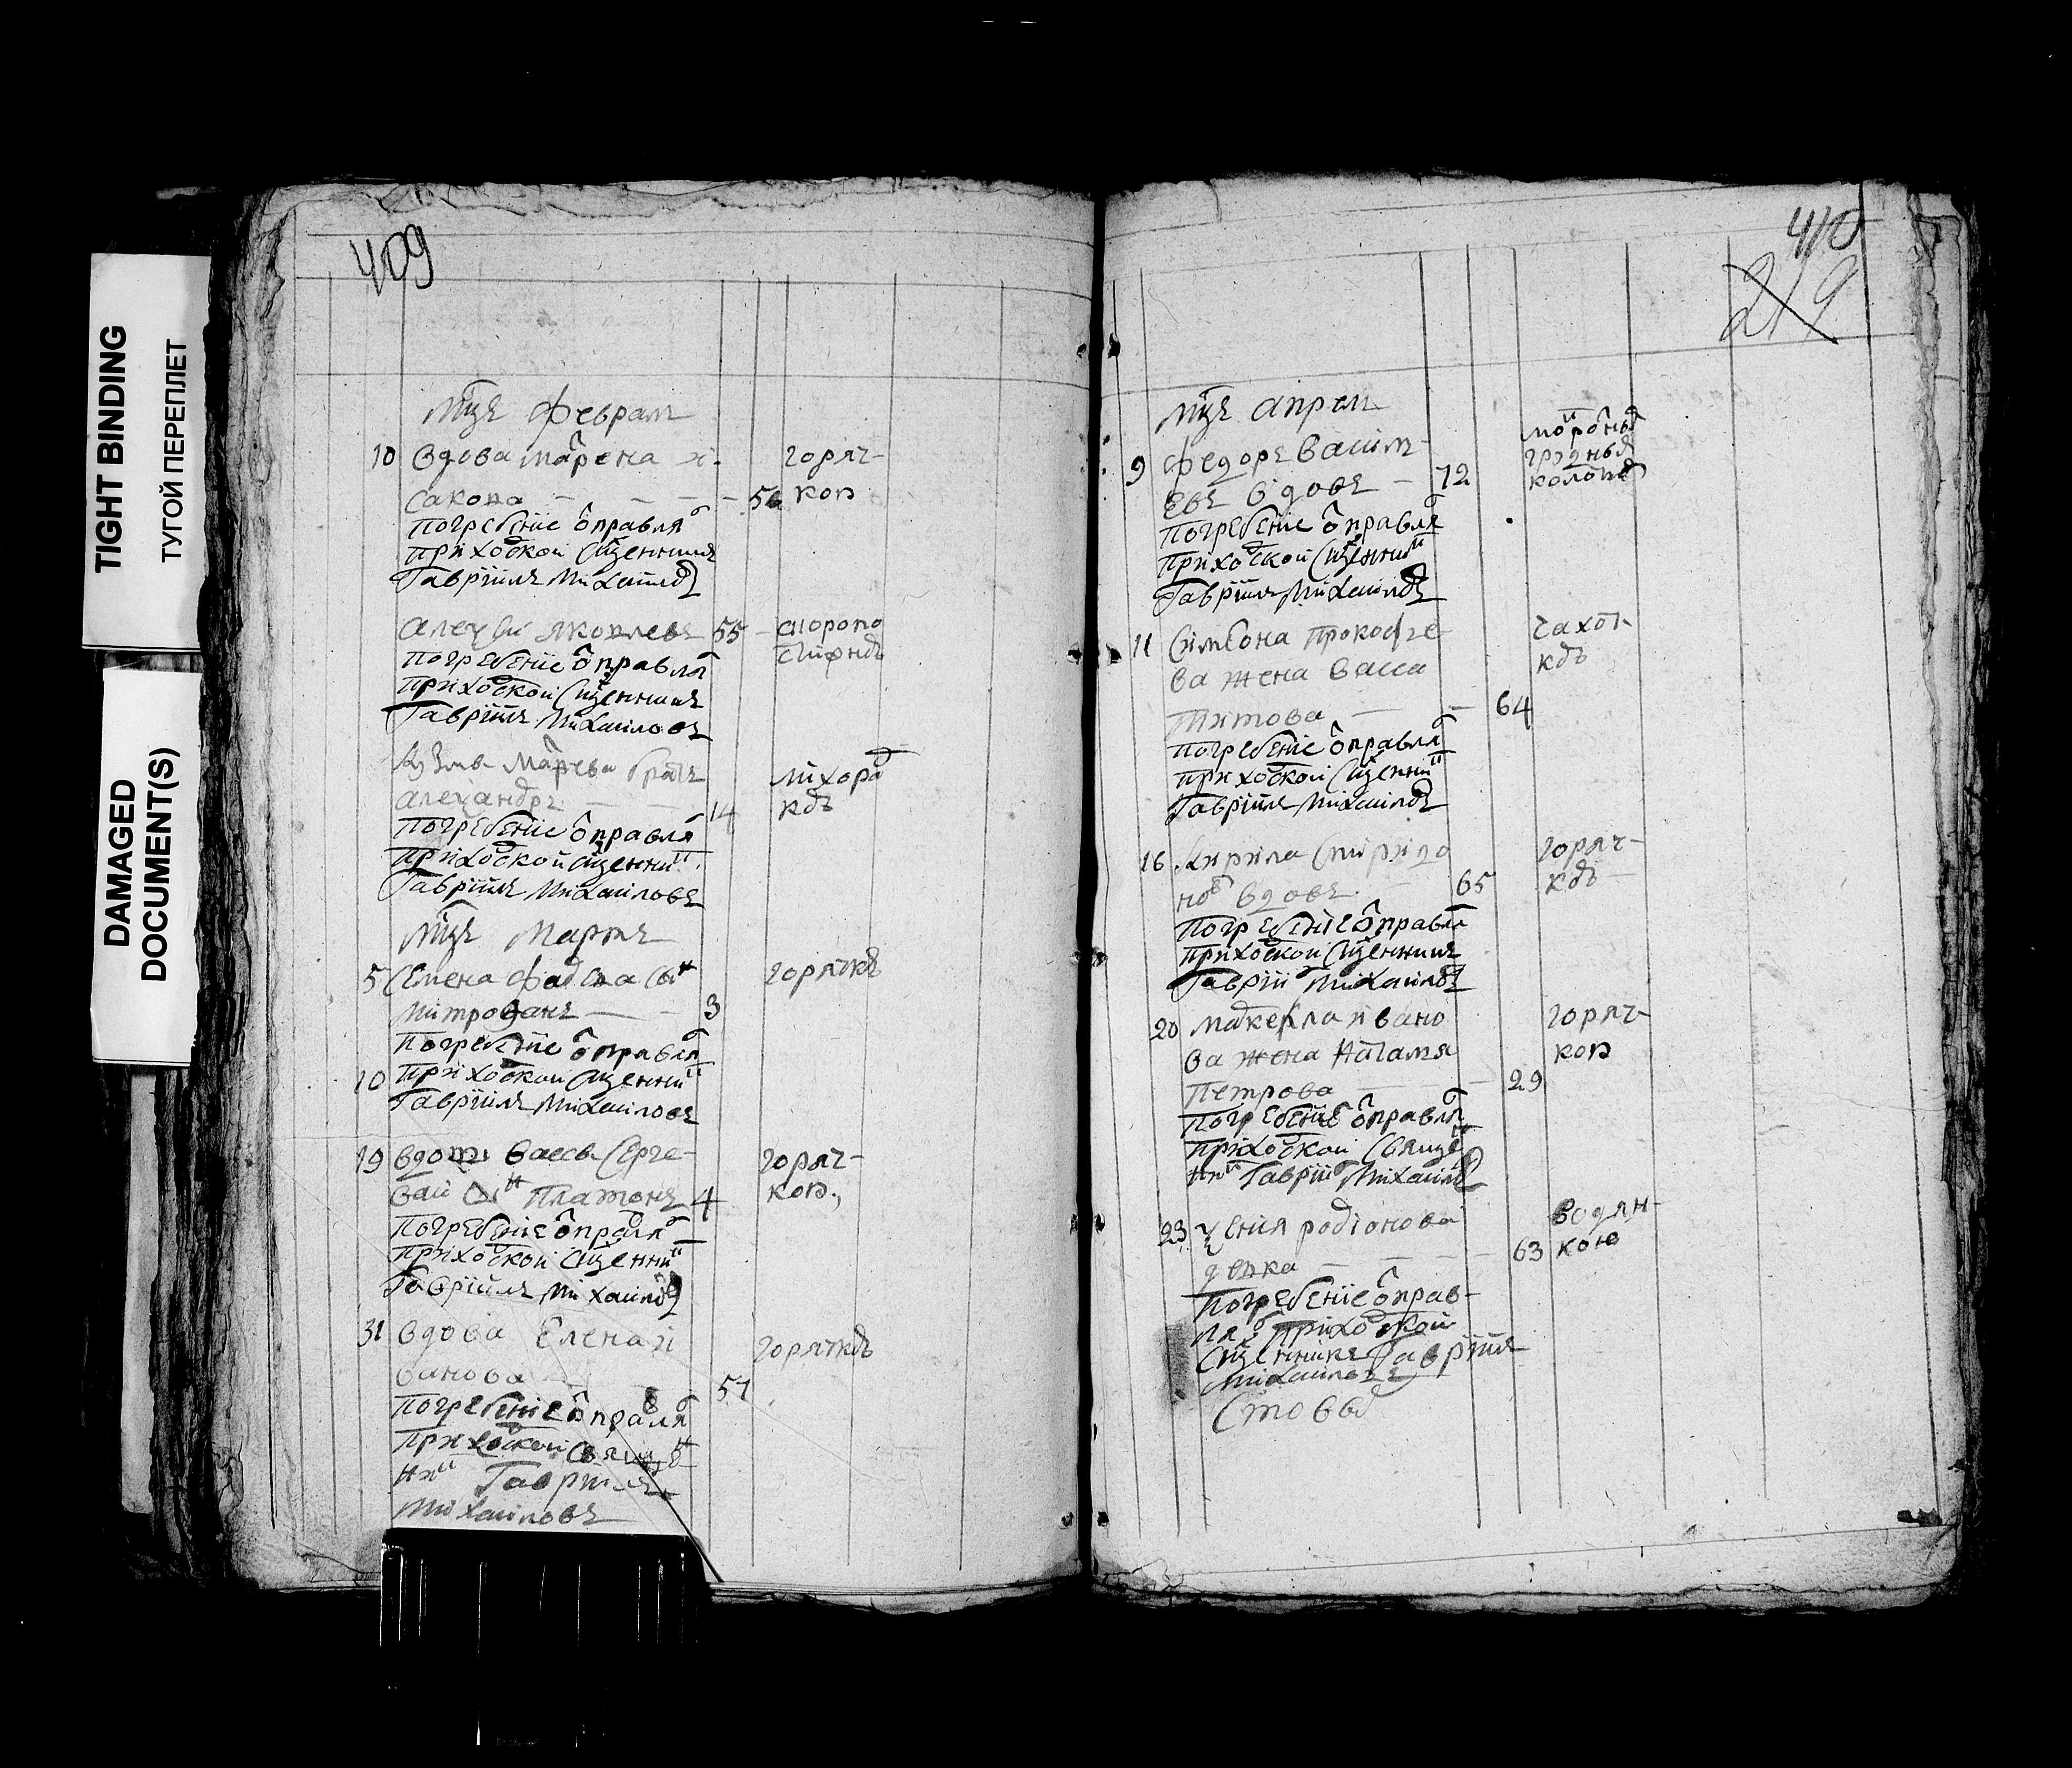 TIGHT BINDING
ТУГОЙ ПЕРЕПЛЕТ
DAMAGED
DOCUMENT(S)
409
Мцъ Февраль
10 вдова Марена И-
сакова 56
горяч-
кою
погребение оправля
приходской сщенникъ
Гаврiилъ Михаилов
Алеѯѣй Яковлевъ 55
погребенiе оправля
приходской сщенникъ
Гаврiилъ Михаиловъ
братъ
Алеѯандръ 14
лихорад
кою
погребенiе оправля
приходской сщенни
Гаврiилъ Михаиловъ
Мцъ Мартъ
5 Семена сын
Митрофанъ 3
горячкою
погребенiе оправля
10 приходской сщенни
Гаврiилъ Михаиловъ
19 вдовы Вассы Серге-
вой сын Платонъ 4
горяч-
кою
погребенiе оправля
приходской сщенни
Гаврiилъ Михаилов
31 вдова Елена И
ванова 57
горячкою
погребенiе оправля
приходской священ
ни Гаврiилъ
Михаиловъ
410
219
Мцъ Апрель
9 Федоръ Василь-
евъ вдовъ 72
погребенiе оправля
приходской сщенни
Гаврiилъ Михаиловъ
11 Симеона Прокофье-
ва жена Васса
Титова 64
чахот-
кою
погребенiе оправля
приходской сщенни
Гаврiилъ Михаилов
16 Кирила Спиридо
нов вдовъ 65
горяч-
кою
погребенiе оправля
приходской сщенникъ
Гаврiил Михаиловъ
20 Ивано
ва жена Наталья
Петрова 29
горяч-
кою
погребенiе оправля
приходской священ
ни Гаврiил Михаилов
23 Родiонова
девка 63
водян-
кою
погребенiе оправ-
ля приходской
сщенникъ Гаврiилъ
Михаиловъ